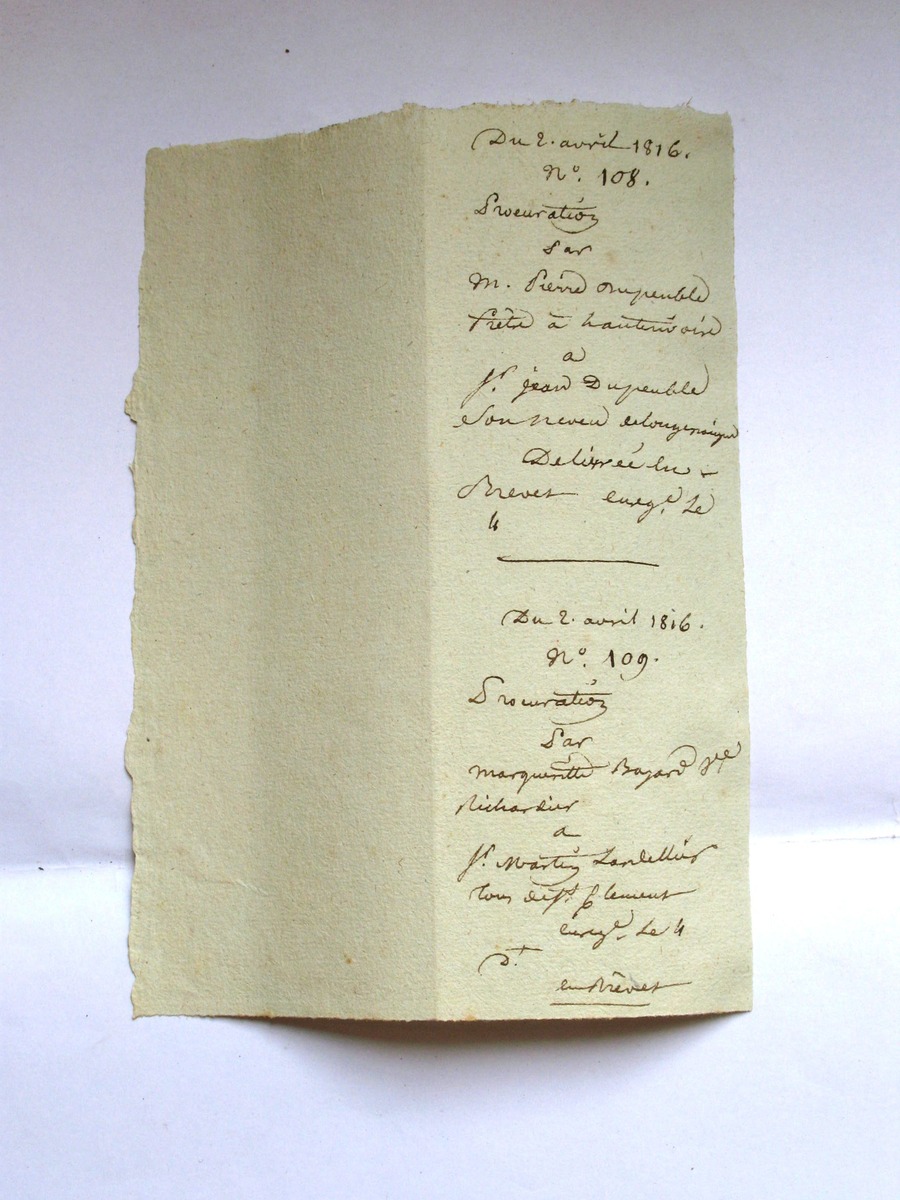 Du 2. avril 1816.
N.º 108.
Procuration
Par
M. Pierre Dupeuble
Prêtre à
a
Sr. jean Dupeuble
son neveu
Delivrée en
Brevet enregé. Le
4
Du 2. avril 1816.
N.º 109.
Procuration
Par
Margueritte Bajard Vve
Richardier
a
Sr. Martin
tous de St. Clement
enregé. Le 4
dt.
en Brevet